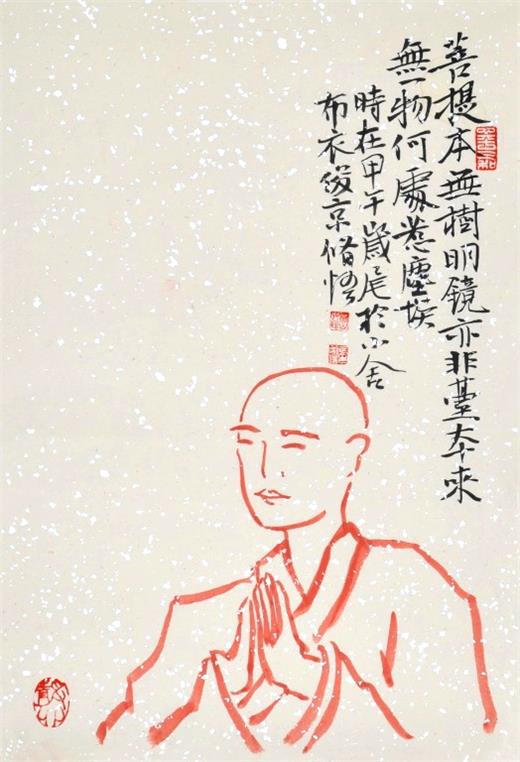 菩提本無樹明鏡亦非臺本來
無一物何處惹塵埃
時在甲午歲尾於小舍
布衣俊京脩悟